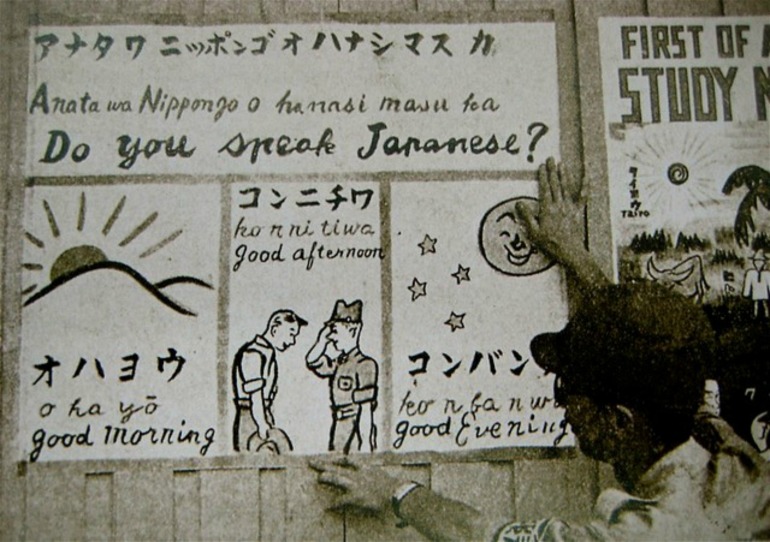 アナタワ ニッポンゴオ ハナシマスカ
Anata wa Nippongo o hanasi masu ka
Do you speak Japanese?
オハヨウ
o ha yō
good morning
コンニチワ
ko n ni ti wa
good afternoon
コンバン
ko n ban wa
good Evening
FIRST OF
STUDY
タイヨウ
TAIYO